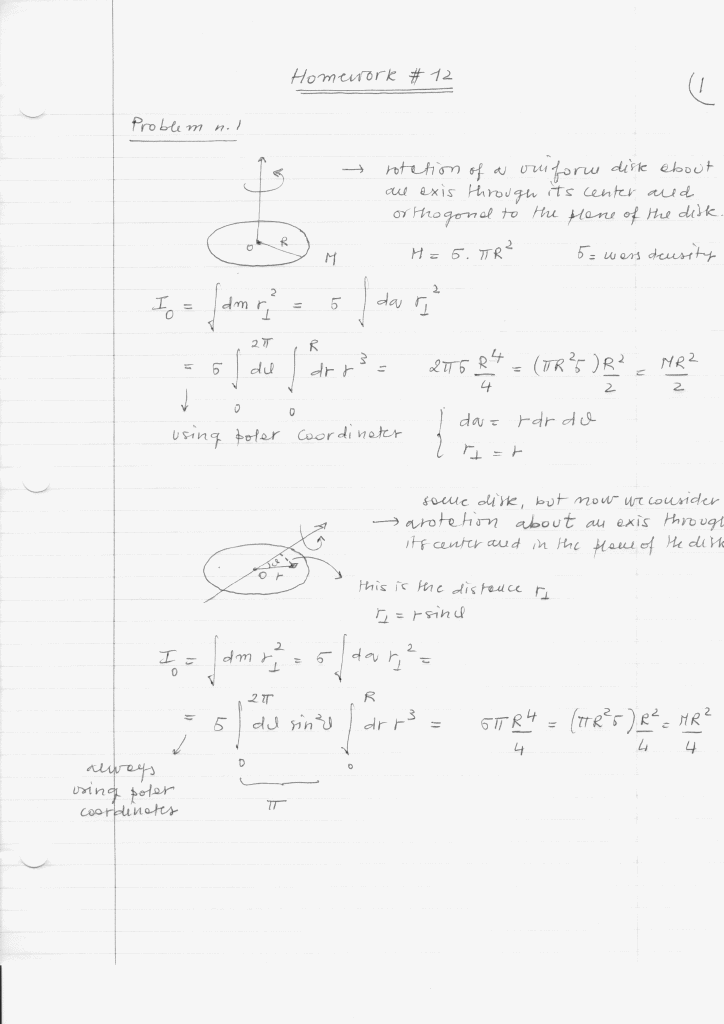 Homework # 12
(1
Problem n. 1
→ rotation of a uniform disk about
an axis through its center and
orthogonal to the plane of the disk.
O R M
M = σ. πR² σ = mass density
I₀ = ∫ dm r⊥² = σ ∫ da r⊥²
= σ ∫₀^2π dϑ ∫₀^R dr r³ = 2πσ R⁴/4 = (πR²σ) R²/2 = MR²/2
using polar coordinates
{ da = r dr dϑ
r⊥ = r
same disk, but now we consider
→ a rotation about an axis through
its center and in the plane of the disk
O r ϑ
this is the distance r⊥
r⊥ = r sinϑ
I₀ = ∫ dm r⊥² = σ ∫ da r⊥² =
= σ ∫₀^2π dϑ sin²ϑ ∫₀^R dr r³ = σπ R⁴/4 = (πR²σ) R²/4 = MR²/4
π
always
using polar
coordinates